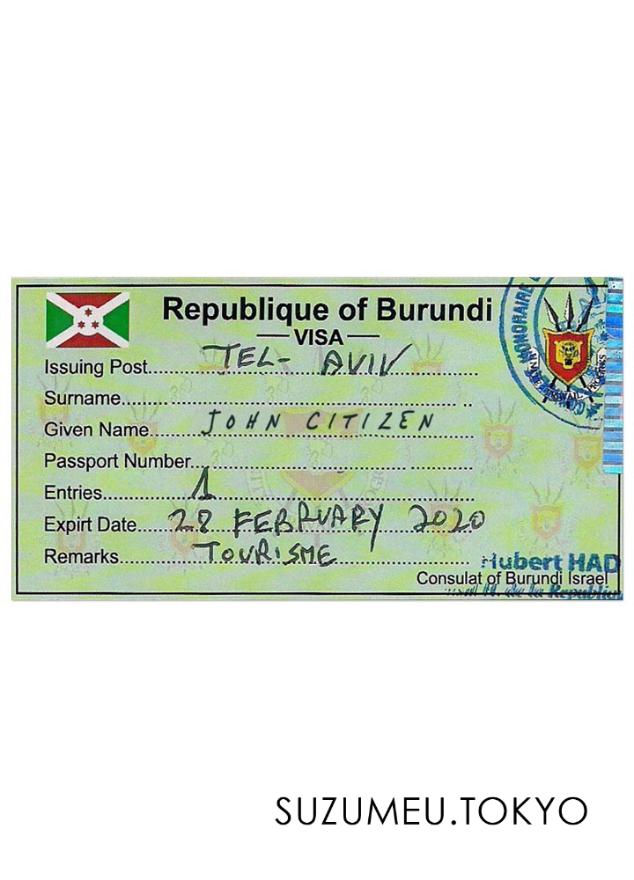 Republique of Burundi
VISA
Issuing Post.....TEL-AVIV
Surname.....
Given Name.....JOHN CITIZEN
Passport Number.....
Entries.....1
Expirt Date.....28 FEBRUARY 2020
Remarks.....TOURISME
Hubert HAD
Consulat of Burundi Israel
de la Republiq
SUZUMEU.TOKYO